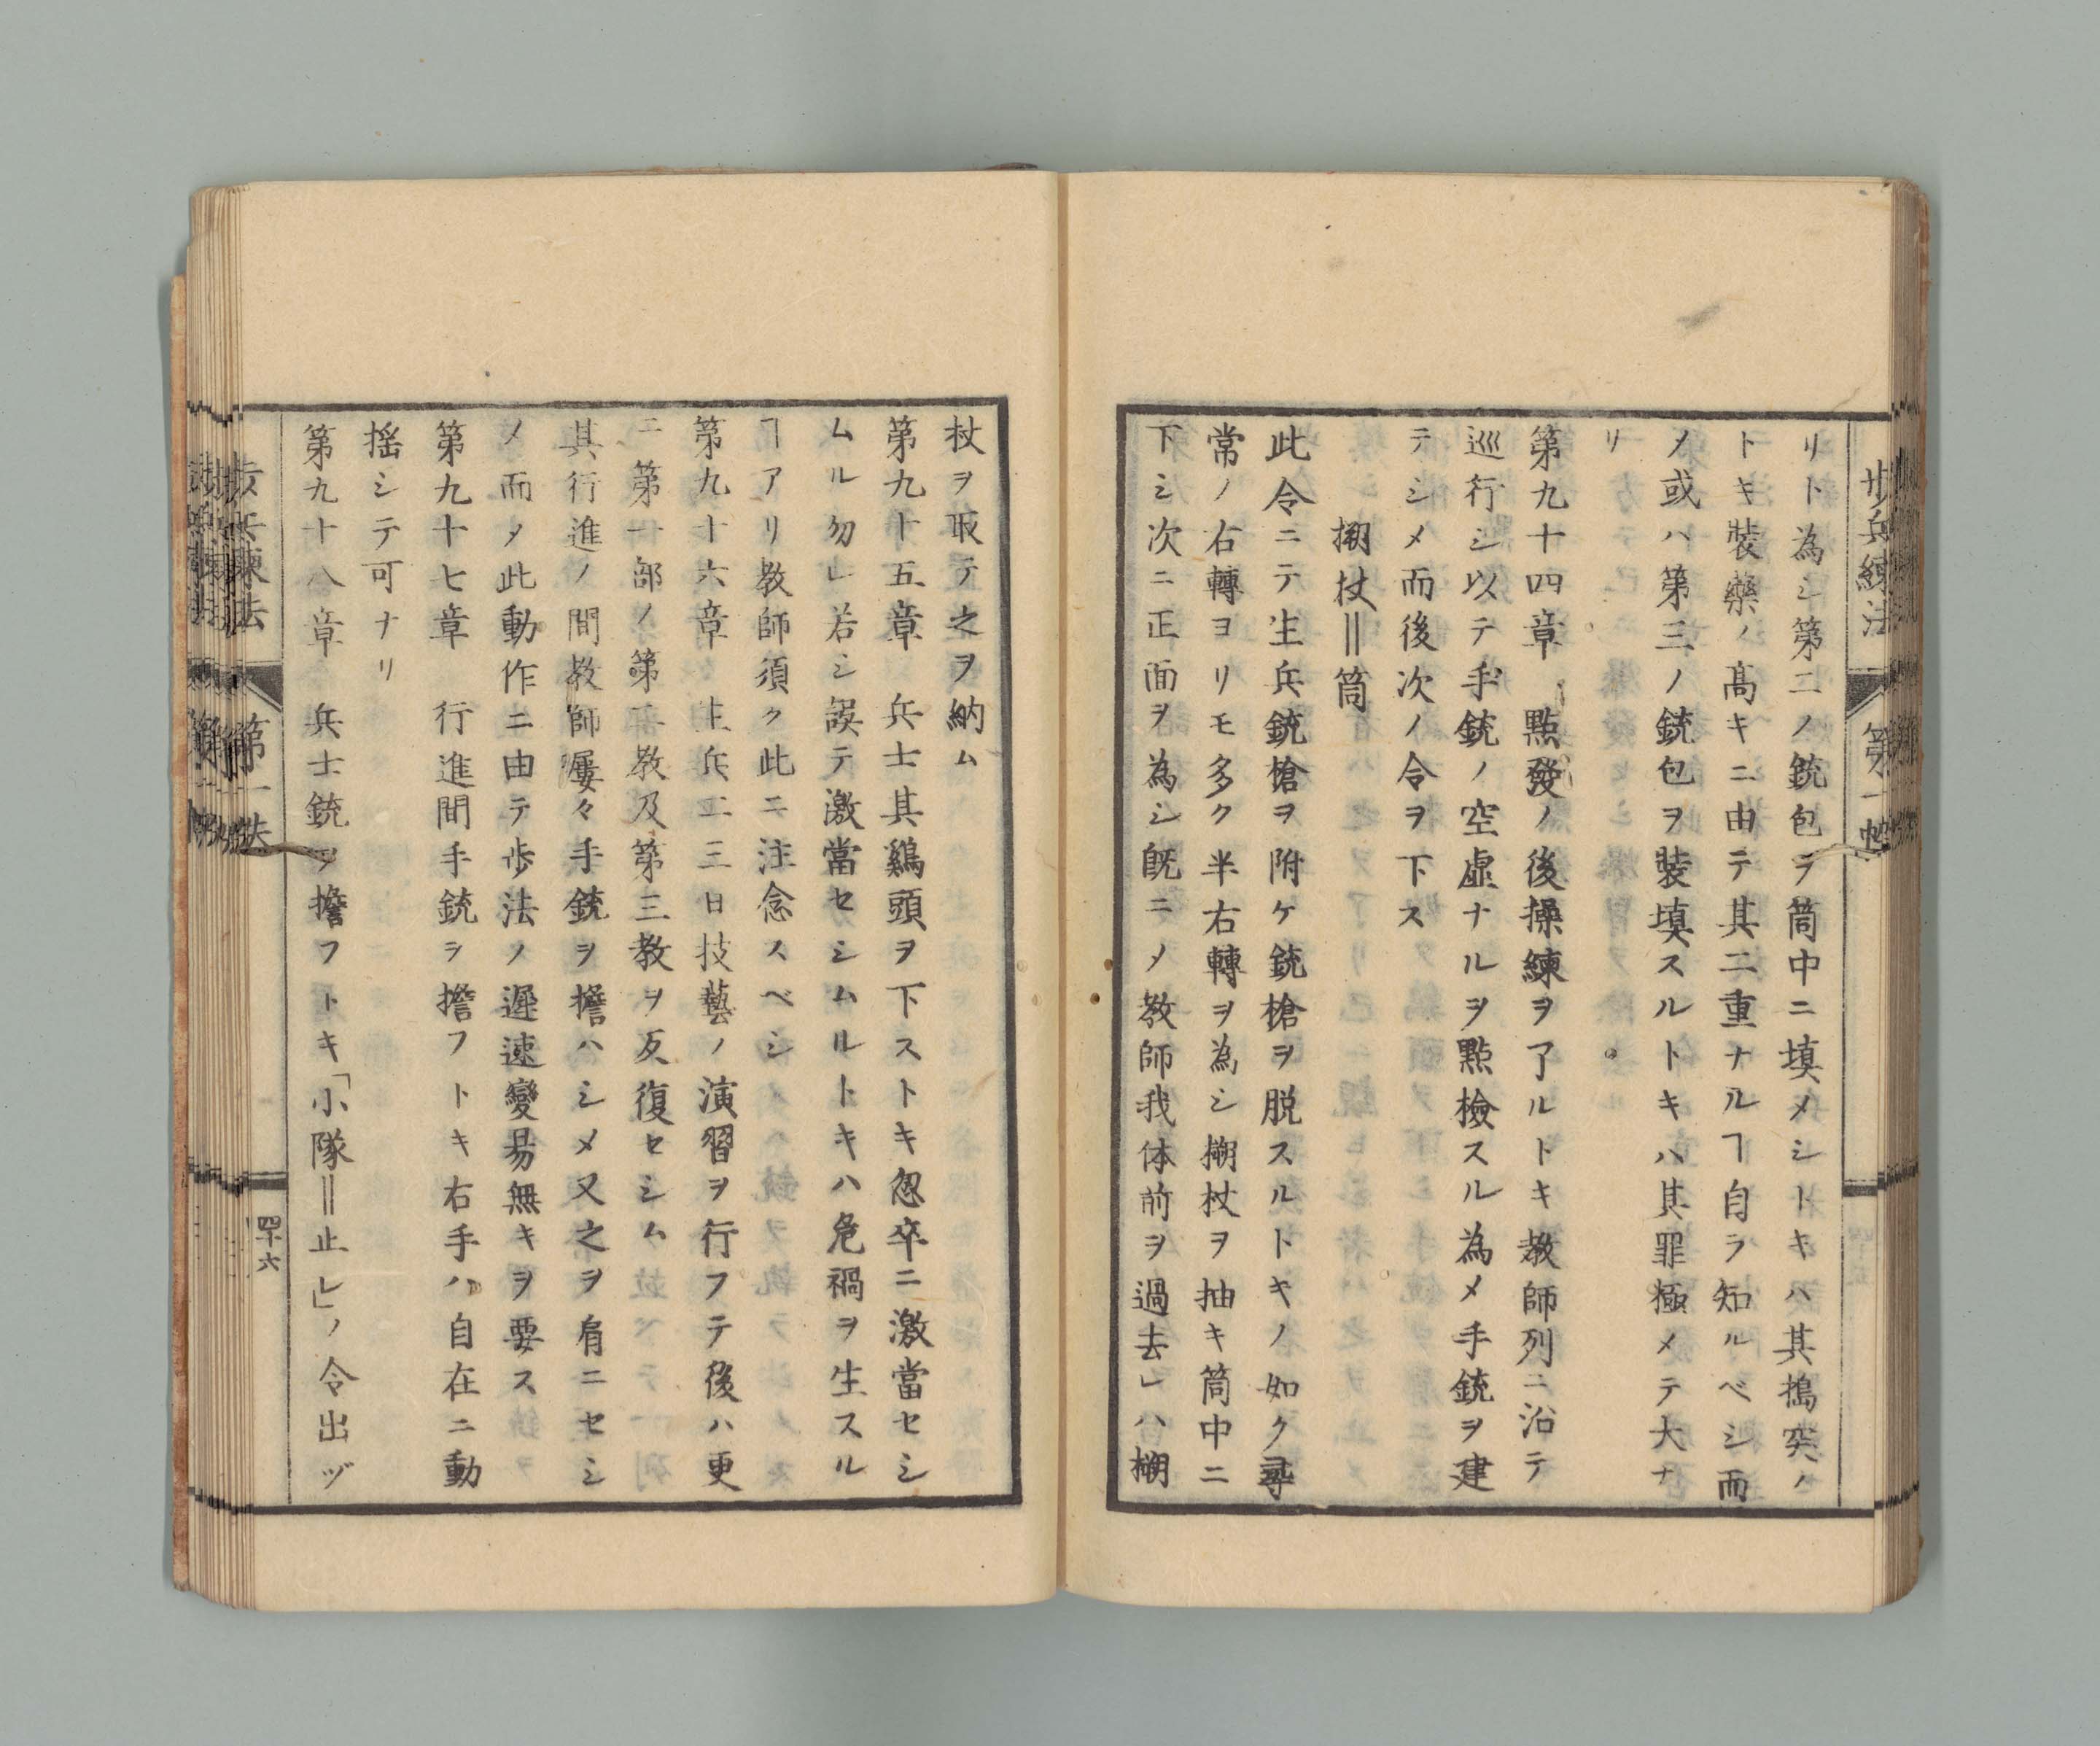 歩兵練法 第一帙
リト為シ第二ノ銃包ヲ筒中ニ填メシトキハ其搗突ノ
トキ装藥ノ髙キニ由テ其二重ナルヿ自ラ知ルベシ而
メ或ハ第三ノ銃包ヲ装填スルトキハ其罪極メテ大ナ
リ
第九十四章 點發ノ後操練ヲ了ルトキ教師列ニ沿テ
巡行シ以テ手銃ノ空虚ナルヲ點檢スル為メ手銃ヲ建
テシメ而後次ノ令ヲ下ス
搠杖‖筒
此令ニテ生兵銃槍ヲ附ケ銃槍ヲ脱スルトキノ如ク尋
常ノ右轉ヨリモ多ク半右轉ヲ為シ搠杖ヲ抽キ筒中ニ
下シ次ニ正面ヲ為シ既ニメ教師我体前ヲ過去レハ搠
杖ヲ取テ之ヲ納ム
第九十五章 兵士其鷄頭ヲ下ストキ忽卒ニ激當セシ
ムル勿レ若シ誤テ激當セシムルトキハ危禍ヲ生スル
ヿアリ教師須ク此ニ注念スベシ
第九十六章 生兵二三日技藝ノ演習ヲ行フテ後ハ更
ニ第一部ノ第二教及第三教ヲ反復セシム
其行進ノ間教師屢々手銃ヲ擔ハシメ又之ヲ肩ニセシ
メ而メ此動作ニ由テ歩法ノ遲速變易無キヲ要ス
第九十七章 行進間手銃ヲ擔フトキ右手ハ自在ニ動
揺シテ可ナリ
第九十八章 兵士銃ヲ擔フトキ「小隊‖止レ」ノ令出ヅ
歩兵練法 第一帙 四十六